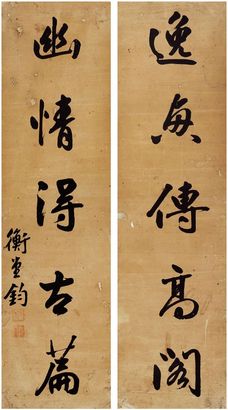 逸興傳高閣
幽情得古篇
衡鈞